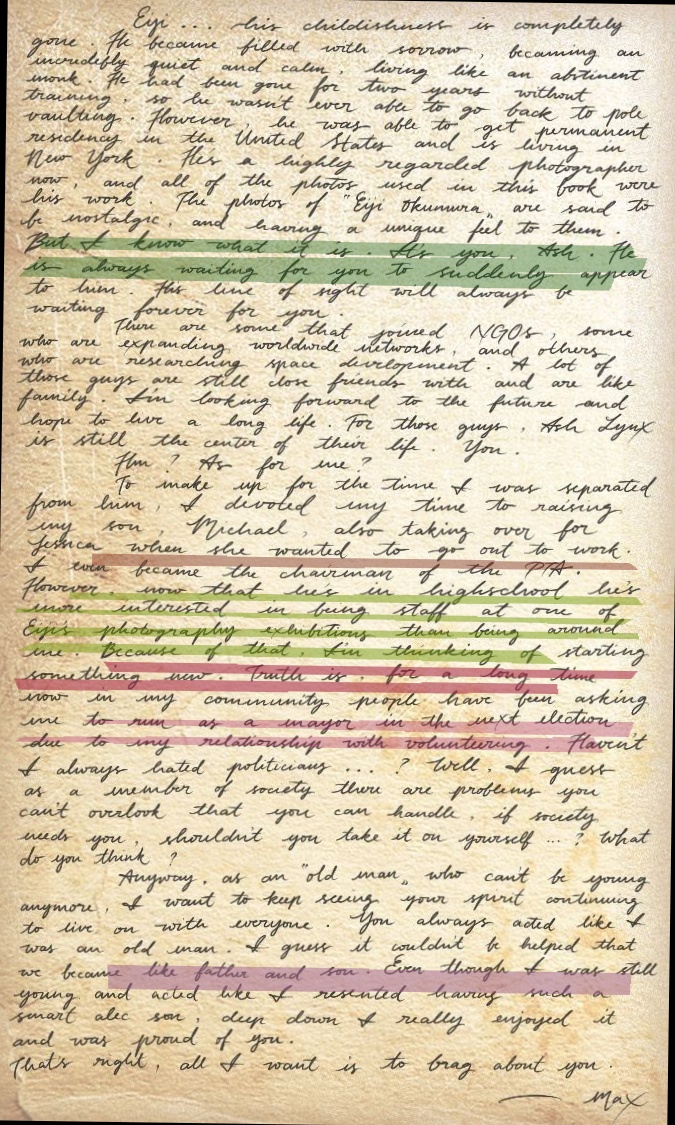 Eiji .... his childishness is completely
gone. He became filled with sorrow, becoming an
incredebly quiet and calm, living like an abstinent
monk. He had been gone for two years without
training, so he wasn't ever able to go back to pole
vaulting. However, he was able to get permanent
residency in the United States and is living in
New York. Hes a highly regarded photographer
now, and all of the photos used in this book were
his work. The photos of "Eiji Okumura" are said to
be nostalgic, and having a unique feel to them.
But I know what it is. It's you, Ash. He
is always waiting for you to suddenly appear
to him. His line of sight will always be
waiting forever for you.
There are some that joined NGOs, some
who are expanding worldwide networks, and others
who are researching space development. A lot of
those guys are still close friends with and are like
family. I'm looking forward to the future and
hope to live a long life. For those guys, Ash Lynx
is still the center of their life. You.
Hm? As for me?
To make up for the time I was separated
from him, I devoted my time to raising
my son Michael, also taking over for
Jessica when she wanted to go out to work.
I even became the chairman of the PTA.
However, now that he's in highschool he's
more interested in being staff at one of
Eiji's photography exhibitions than being around
me. Because of that, I'm thinking of starting
something new. Truth is, for a long time
now in my community people have been asking
me to run as a mayor in the next election
due to my relationship with volunteering. Haven't
I always hated politicians ...? Well, I guess
as a member of society there are problems you
can't overlook that you can handle, if society
needs you, shouldn't you take it on yourself ...? What
do you think?
Anyway, as an "old man" who can't be young
anymore, I want to keep seeing your spirit continuing
to live on with everyone. You always acted like I
was an old man. I guess it couldn't be helped that
we became like father and son. Even though I was still
young and acted like I resented having such a
smart alec son, deep down I really enjoyed it
and was proud of you.
That's right, all I want is to brag about you.
— Max